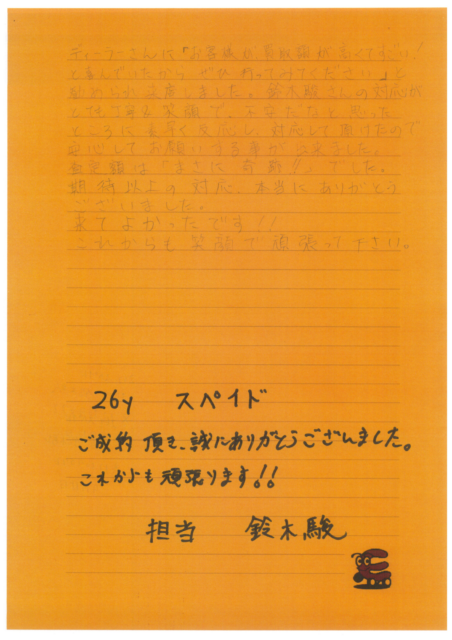 ディーラーさんに「お客様が買取額が高くてすごい!
と喜んでいたから ぜひ行ってみてください」と
すすめられ 来店しました。鈴木駿さんの対応が
とても丁寧で 笑顔で、不安だなと思った
ところに 素早く反応し、対応して頂けたので
安心してお願いする事が出来ました。
査定額は「まさに奇跡!!」でした。
期待以上の対応、本当にありがとう
ございました。
来てよかったです!!
これからも 笑顔で頑張って下さい。
26y スペイド
ご成約 頂き、誠にありがとうございました。
これからも 頑張ります!!
担当 鈴木駿